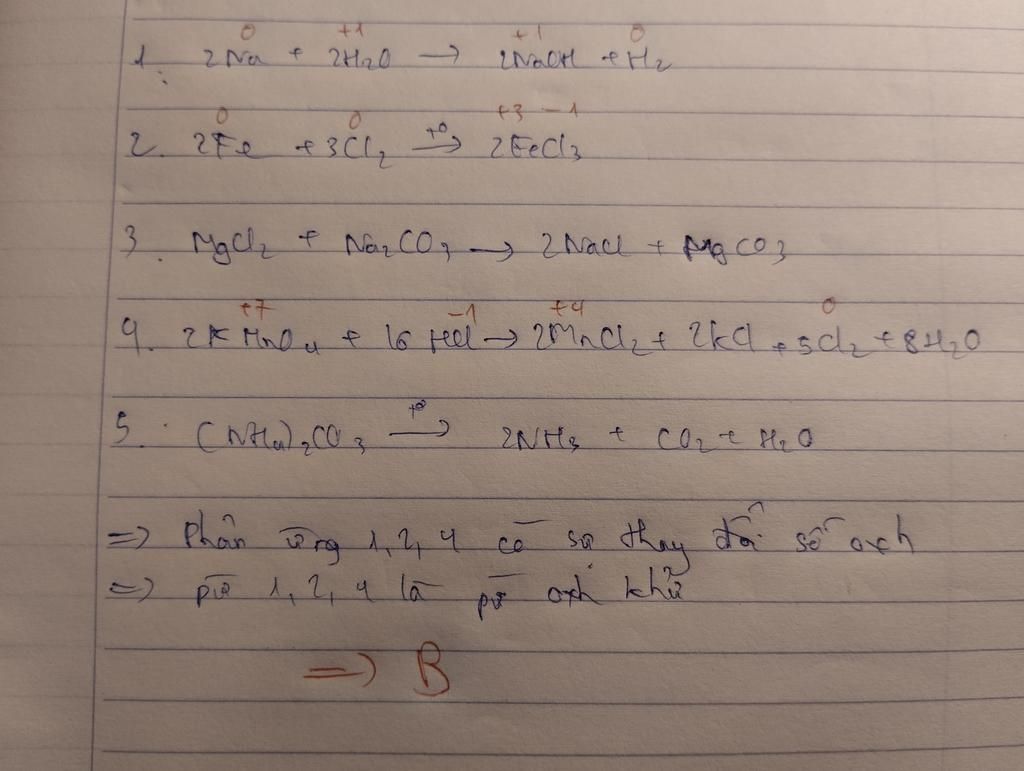 0 +1 +1 0
1. 2Na + 2H2O → 2NaOH + H2
0 0 +3 -1
2. 2Fe + 3Cl2 →(t°) 2FeCl3
3. MgCl2 + Na2CO3 → 2NaCl + MgCO3
+7 -1 +4 0
4. 2KMnO4 + 16HCl → 2MnCl2 + 2KCl + 5Cl2 + 8H2O
5. (NH4)2CO3 →(t°) 2NH3 + CO2 + H2O
=> Phản ứng 1, 2, 4 có sự thay đổi số oxh
=> pứ 1, 2, 4 là pứ oxh khử
=> B